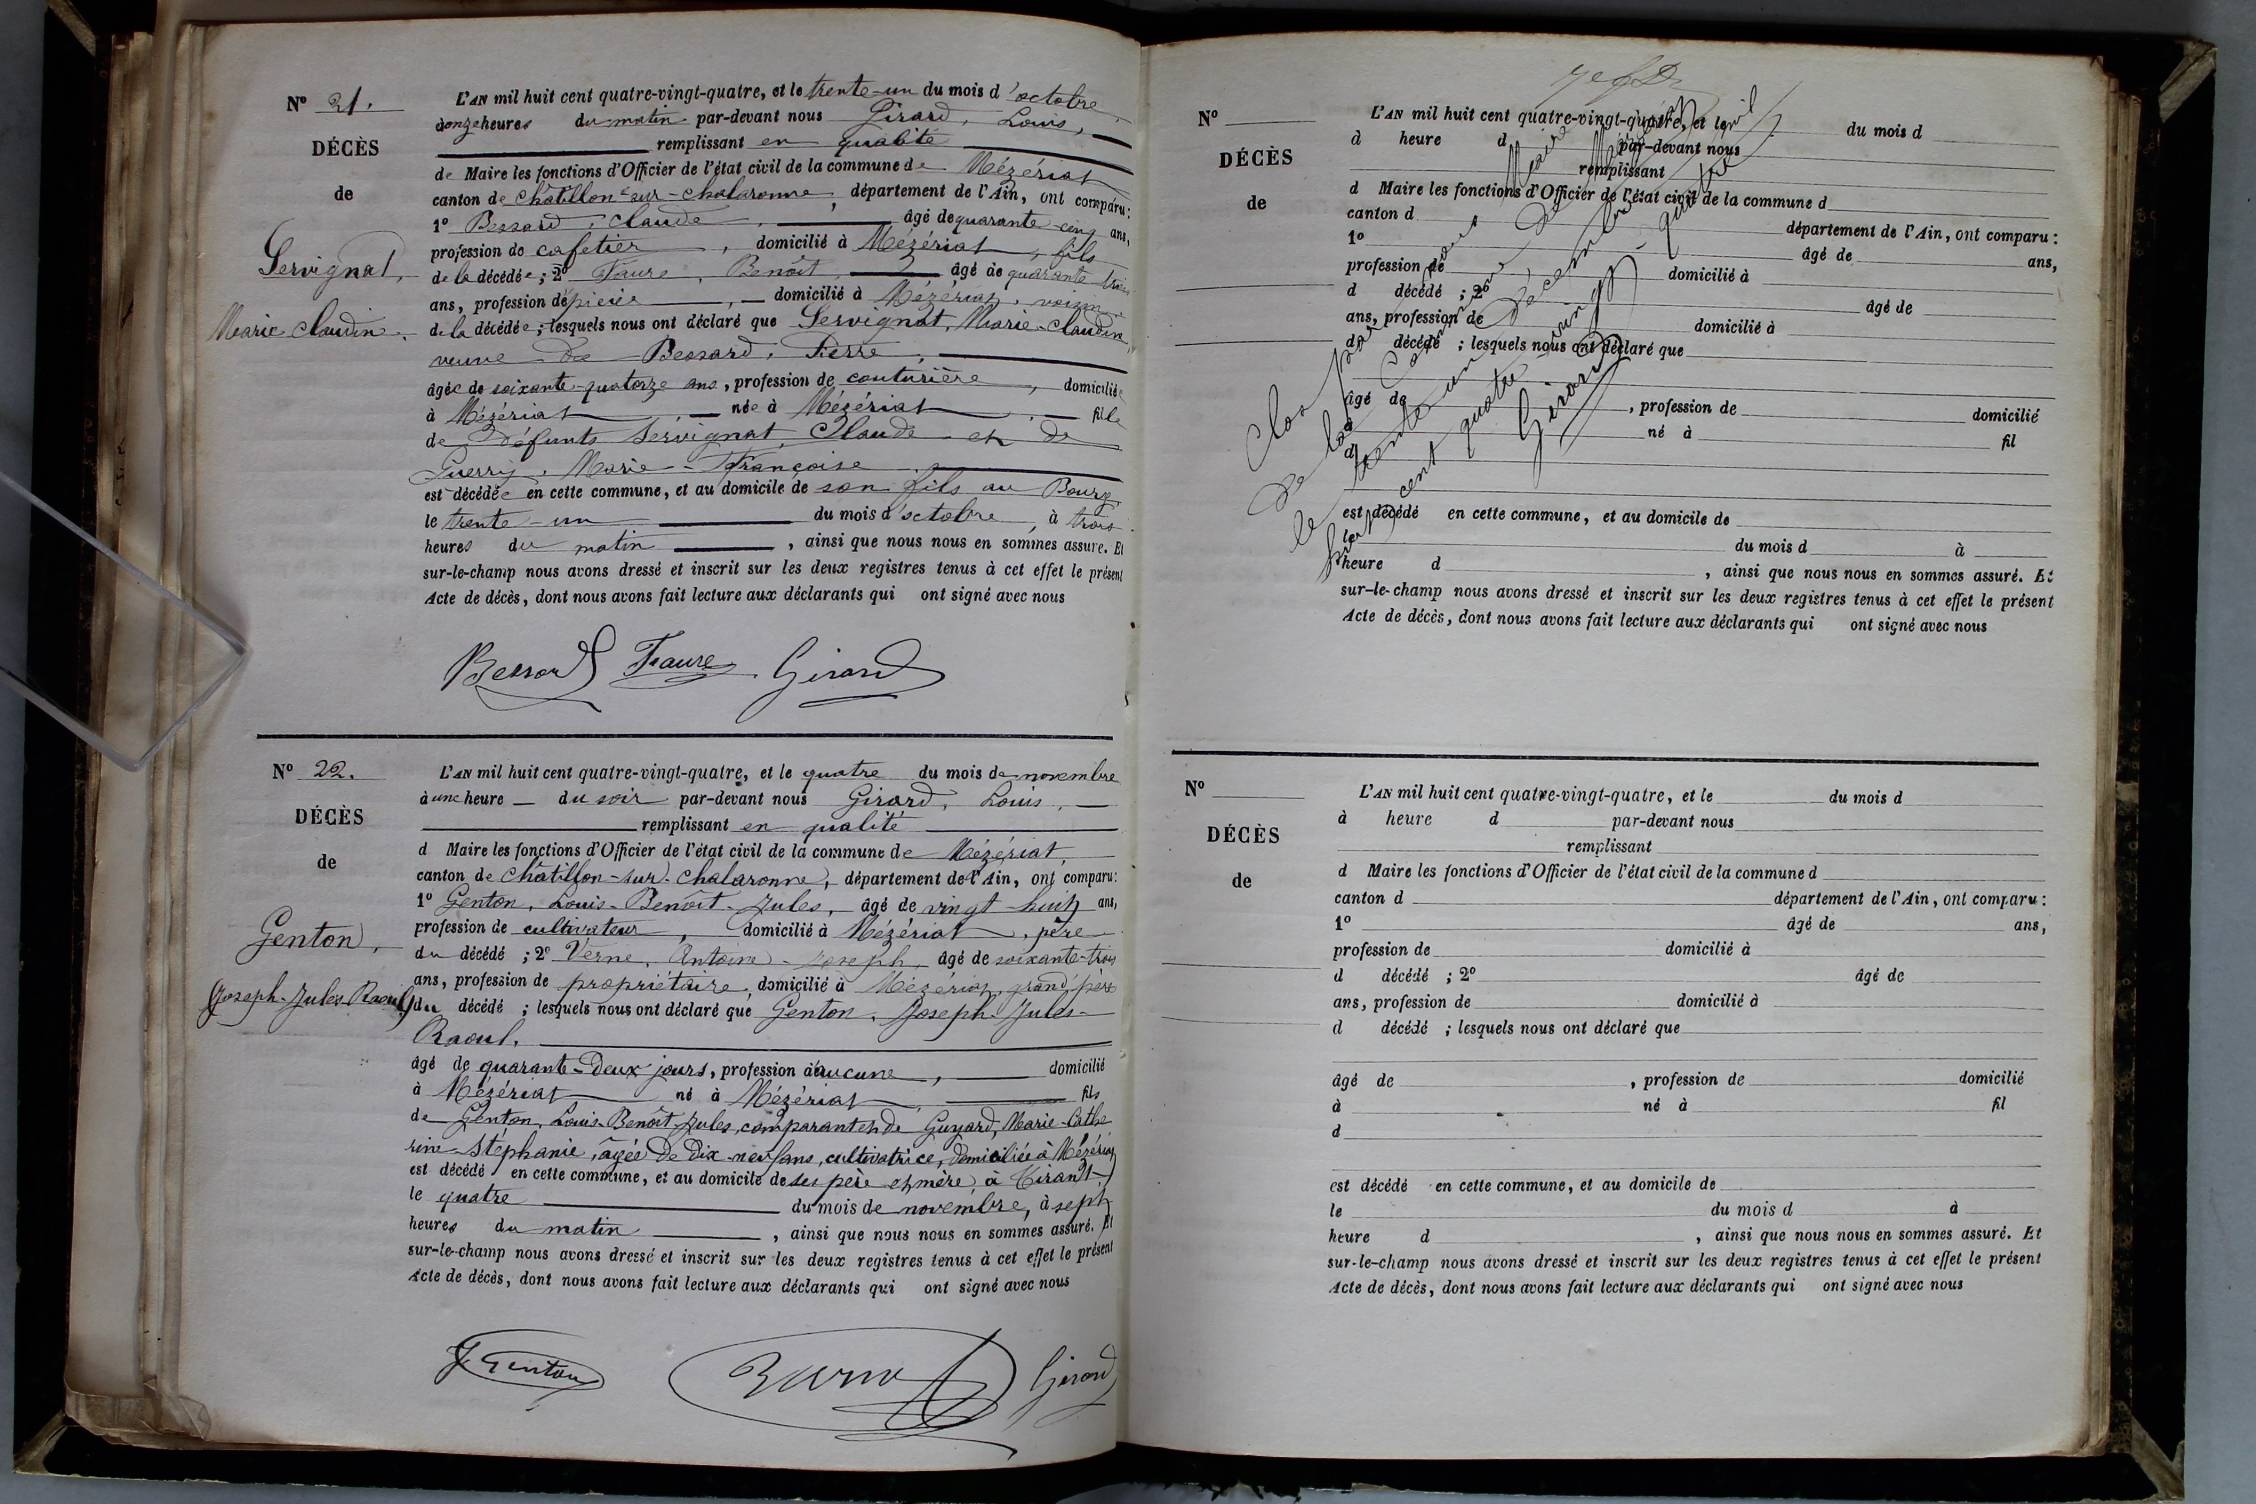 N° 21.
DÉCÈS
de
Servignat,
Marie Claudin.
L'AN mil huit cent quatre-vingt-quatre, et le trente-un du mois d'octobre,
à onze heures du matin par-devant nous Girard, Louis,
remplissant en qualité
de Maire les fonctions d'Officier de l'état civil de la commune de Mézériat
canton de Châtillon-sur-Chalaronne, département de l'Ain, ont comparu:
1° Bessard, Claude, âgé de quarante cinq ans,
profession de cafetier, domicilié à Mézériat, fils
de la décédée; 2° Faure, Benoît, âgé de quarante trois
ans, profession d'épicier, domicilié à Mézériat, voisin
de la décédée; lesquels nous ont déclaré que Servignat, Marie-Claudin,
veuve de Bessard, Pierre,
âgée de soixante-quatorze ans, profession de couturière, domiciliée
à Mézériat, née à Mézériat, fille
de défunts Servignat, Claude et de
Guerry, Marie-Françoise
est décédée en cette commune, et au domicile de son fils au Bourg,
le trente-un du mois d'octobre, à trois
heures du matin, ainsi que nous nous en sommes assuré. Et
sur-le-champ nous avons dressé et inscrit sur les deux registres tenus à cet effet le présent
Acte de décès, dont nous avons fait lecture aux déclarants qui ont signé avec nous
Bessard Faure Girard
N° 22.
DÉCÈS
de
Genton,
Joseph-Jules Raoul
L'AN mil huit cent quatre-vingt-quatre, et le quatre du mois de novembre
à une heure du soir par-devant nous Girard, Louis,
remplissant en qualité
d Maire les fonctions d'Officier de l'état civil de la commune de Mézériat,
canton de Châtillon-sur-Chalaronne, département de l'Ain, ont comparu:
1° Genton, Louis-Benoît-Jules, âgé de vingt-huit ans,
profession de cultivateur, domicilié à Mézériat, père
du décédé; 2° Verne, Antoine-Joseph, âgé de soixante-trois
ans, profession de propriétaire, domicilié à Mézériat, grand'père
du décédé; lesquels nous ont déclaré que Genton, Joseph-Jules-
Raoul,
âgé de quarante-deux jours, profession d'aucune, domicilié
à Mézériat né à Mézériat, fils
de Genton, Louis-Benoît-Jules, comparant et de Guyard, Marie-Cathe
rine-Stéphanie, âgée de dix-neuf ans, cultivatrice, domiciliée à Mézériat
est décédé en cette commune, et au domicile de ses père et mère, à
le quatre du mois de novembre, à sept
heures du matin, ainsi que nous nous en sommes assuré. Et
sur-le-champ nous avons dressé et inscrit sur les deux registres tenus à cet effet le présent
Acte de décès, dont nous avons fait lecture aux déclarants qui ont signé avec nous
J Genton Verne Girard
N°
DÉCÈS
de
L'AN mil huit cent quatre-vingt-quatre, et le du mois d
à heure d par-devant nous
remplissant
d Maire les fonctions d'Officier de l'état civil de la commune d
canton d département de l'Ain, ont comparu:
1° âgé de ans,
profession de domicilié à
d décédé; 2° âgé de
ans, profession de domicilié à
d décédé; lesquels nous ont déclaré que
âgé de, profession de domicilié
à né à fil
d
est décédé en cette commune, et au domicile de
le du mois d à
heure d, ainsi que nous nous en sommes assuré. Et
sur-le-champ nous avons dressé et inscrit sur les deux registres tenus à cet effet le présent
Acte de décès, dont nous avons fait lecture aux déclarants qui ont signé avec nous
Clos par nous Maire
de la Commune de Mézériat
le trente-un décembre mil
huit cent quatre-vingt-quatre
Girard
N°
DÉCÈS
de
L'AN mil huit cent quatre-vingt-quatre, et le du mois d
à heure d par-devant nous
remplissant
d Maire les fonctions d'Officier de l'état civil de la commune d
canton d département de l'Ain, ont comparu:
1° âgé de ans,
profession de domicilié à
d décédé; 2° âgé de
ans, profession de domicilié à
d décédé; lesquels nous ont déclaré que
âgé de, profession de domicilié
à né à fil
d
est décédé en cette commune, et au domicile de
le du mois d à
heure d, ainsi que nous nous en sommes assuré. Et
sur-le-champ nous avons dressé et inscrit sur les deux registres tenus à cet effet le présent
Acte de décès, dont nous avons fait lecture aux déclarants qui ont signé avec nous